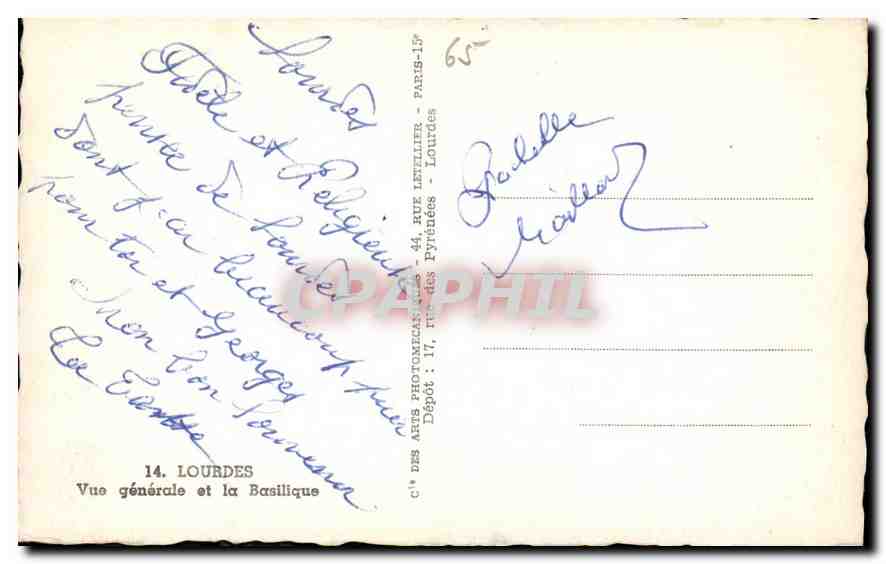 Lourdes
Fidèle et Religieuse
pensée de Lourdes
dont j'ai beaucoup prier
pour toi et Georges
mon bon souvenir
14. LOURDES
Vue générale et la Basilique
Cie DES ARTS PHOTOMECANIQUES - 44, RUE LETELLIER - PARIS-15e
Dépôt : 17, rue des Pyrénées - Lourdes
65
CPAPHIL